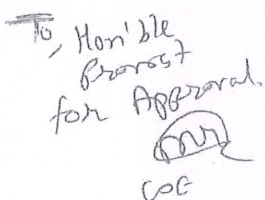 To,
Hon'ble
Provost
for Approval.
COE